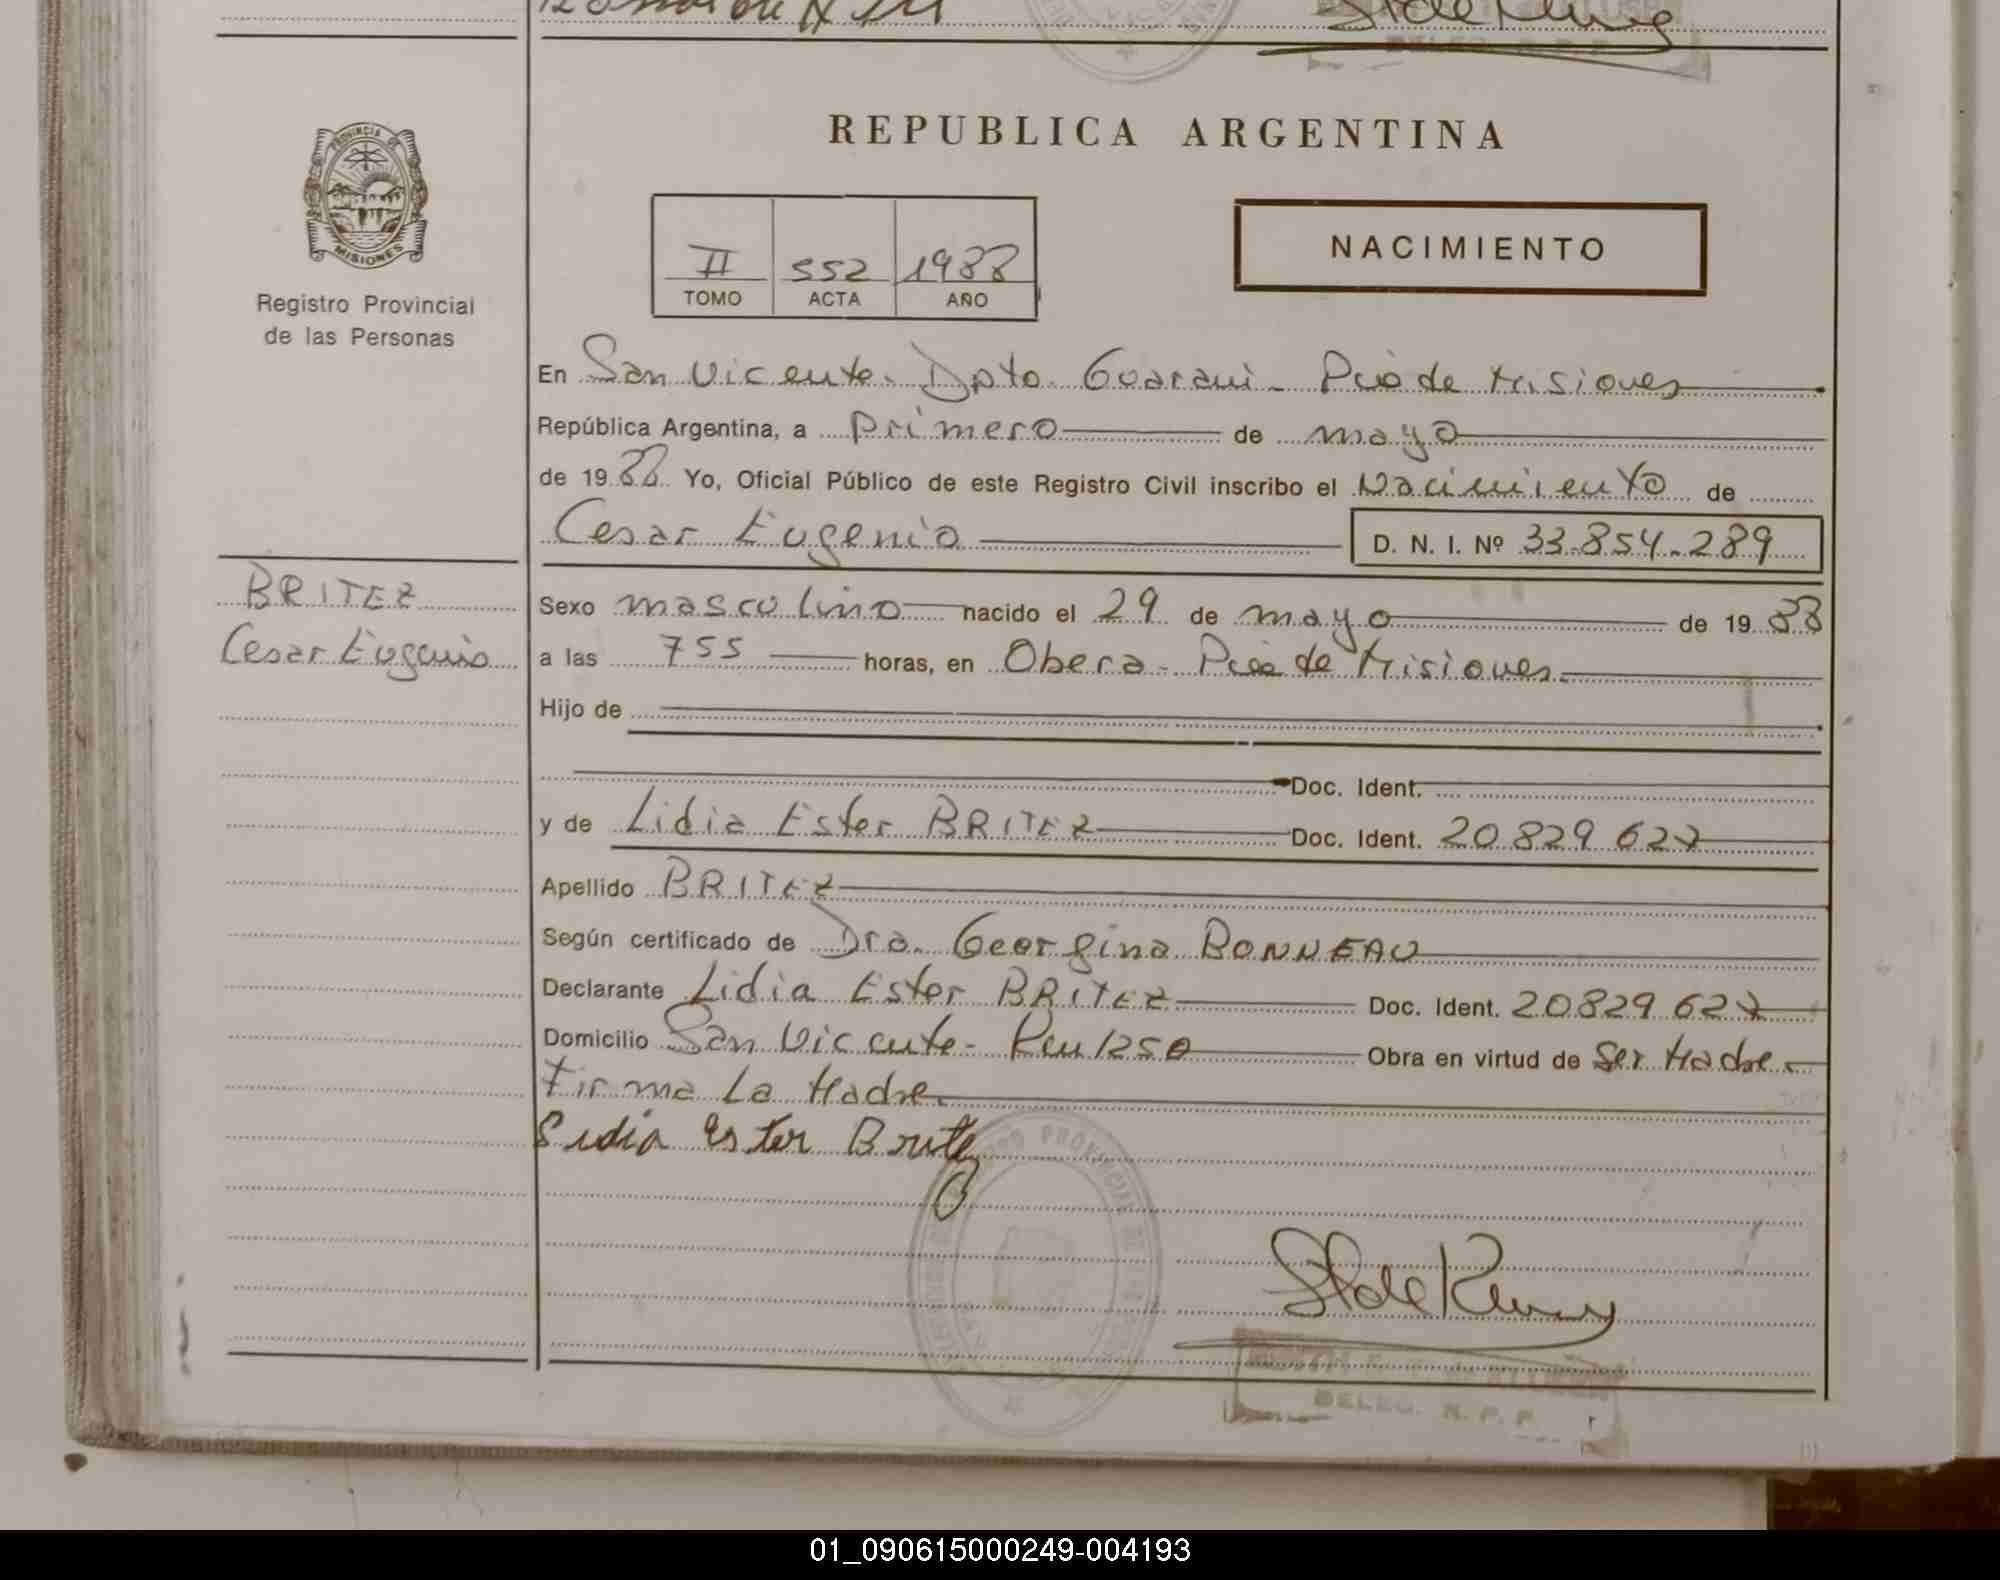 REPUBLICA ARGENTINA
PROVINCIA DE
MISIONES
Registro Provincial
de las Personas
II 552 1988
TOMO ACTA AÑO
NACIMIENTO
En San Vicente. Dpto. Guarani - Pcia de Misiones
República Argentina, a primero de mayo
de 1988 Yo, Oficial Público de este Registro Civil inscribo el Nacimiento de
Cesar Eugenio D. N. I. Nº 33.854.289
BRITEZ
Cesar Eugenio
Sexo masculino nacido el 29 de mayo de 1988
a las 755 horas, en Obera - Pcia de Misiones
Hijo de
Doc. Ident.
y de Lidia Ester BRITEZ Doc. Ident. 20 829 627
Apellido BRITEZ
Según certificado de Dra. Georgina BONNEAU
Declarante Lidia Ester BRITEZ Doc. Ident. 20829 627
Domicilio San Vicente - Km 1250 Obra en virtud de Ser Madre
Firma La Madre
Lidia Ester Britez
DELEG. R. P. P.
01_090615000249-004193